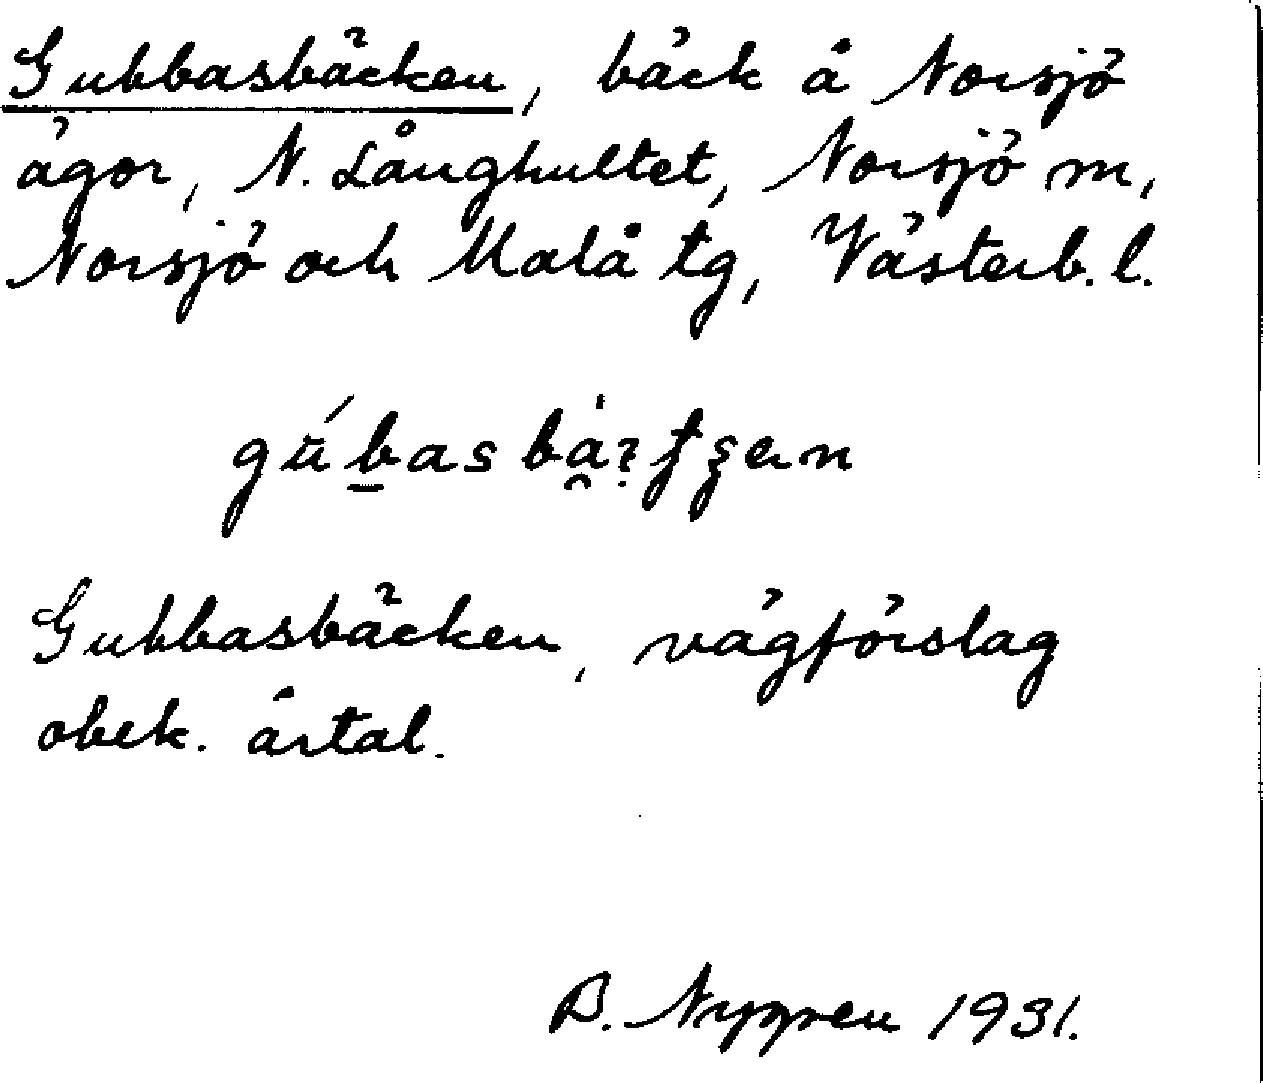 Gubbasbäcken, bäck å Norsjö
ägor, N. Långhultet, Norsjö m,
Norsjö och Malå tg, Västerb. l.
Gubbasbäcken, vägförslag
obek. årtal.
B. Nygren 1931.